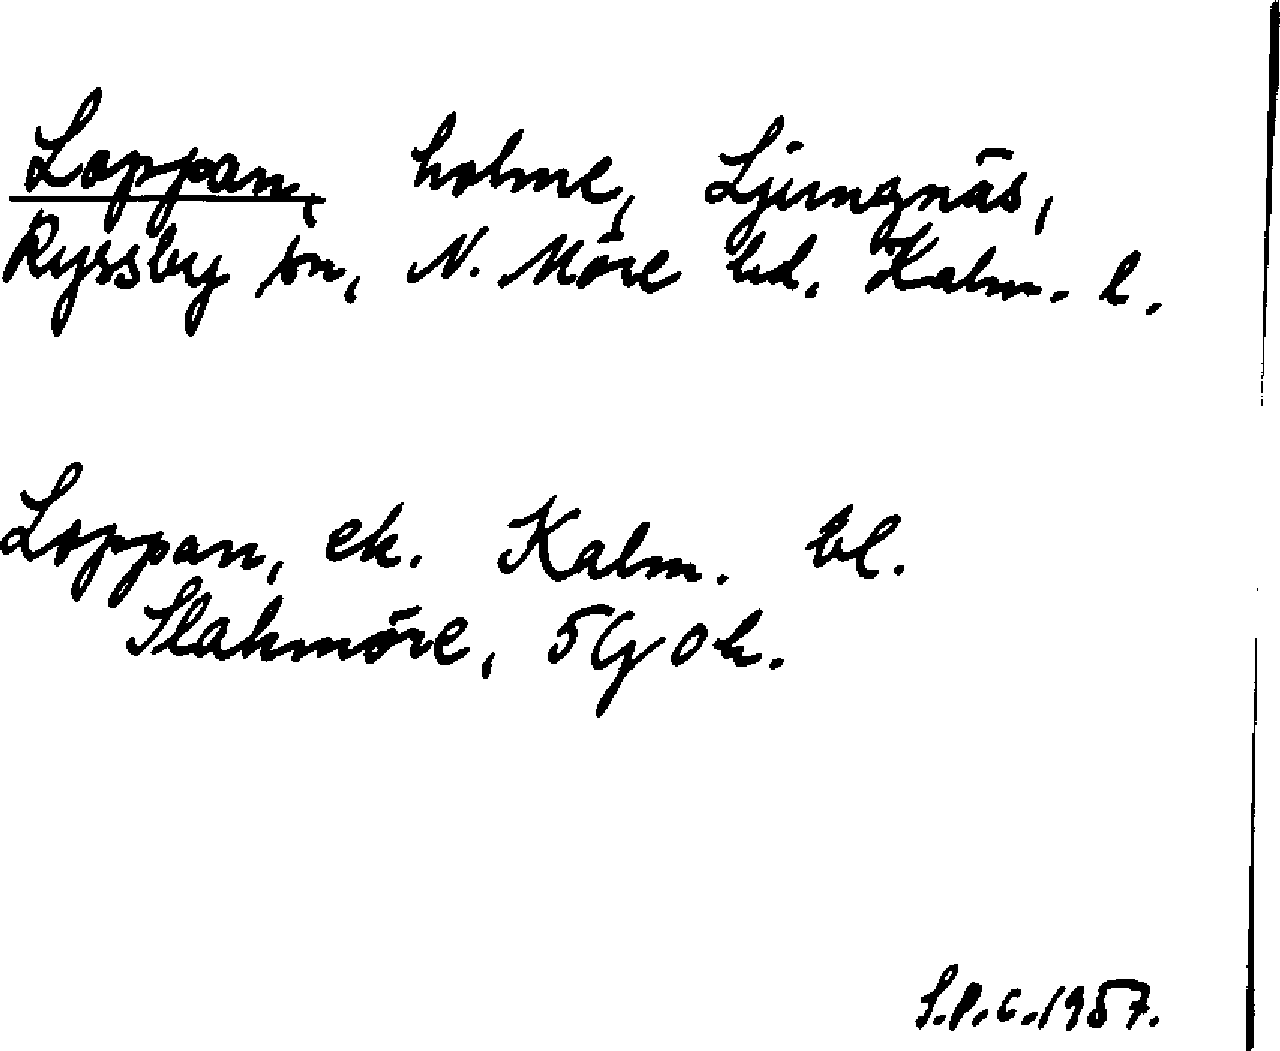 Loppan, holme, Ljungnäs,
Ryssby sn, N. Möre hd. Kalm. l.
Loppan, ek. Kalm. bl.
Slakmöre, 5G 0h.
S.P.C. 1957.